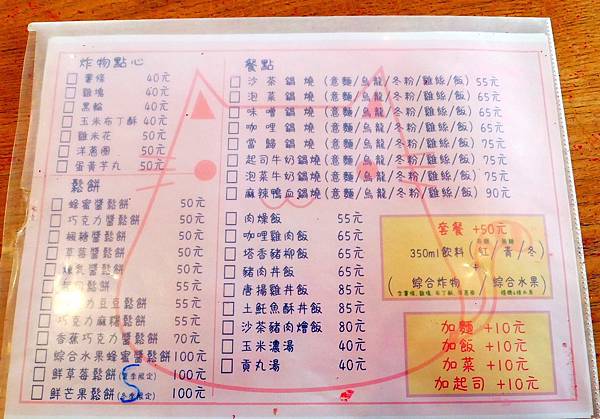 炸物點心
薯條 40元
雞塊 40元
黑輪 40元
玉米布丁酥 40元
雞米花 50元
洋蔥圈 50元
蛋黃芋丸 50元
鬆餅
蜂蜜醬鬆餅 50元
巧克力醬鬆餅 50元
楓糖醬鬆餅 50元
草莓醬鬆餅 50元
煉乳醬鬆餅 50元
鬆餅 55元
力豆豆鬆餅 55元
巧克力麻糬鬆餅 55元
香蕉巧克力醬鬆餅 70元
綜合水果蜂蜜醬鬆餅 100元
鮮草莓鬆餅(夏季限定) 100元
鮮芒果鬆餅(冬季限定) 100元
S
餐點
沙茶鍋燒(意麵/烏龍/冬粉/雞絲/飯) 55元
泡菜鍋燒(意麵/烏龍/冬粉/雞絲/飯) 65元
味噌鍋燒(意麵/烏龍/冬粉/雞絲/飯) 65元
咖哩鍋燒(意麵/烏龍/冬粉/雞絲/飯) 65元
當歸鍋燒(意麵/烏龍/冬粉/雞絲/飯) 75元
起司牛奶鍋燒(意麵/烏龍/冬粉/雞絲/飯) 75元
泡菜牛奶鍋燒(意麵/烏龍/冬粉/雞絲/飯) 75元
麻辣鴨血鍋燒(意麵/烏龍/冬粉/雞絲/飯) 90元
肉燥飯 55元
咖哩雞肉飯 65元
塔香豬柳飯 65元
豬肉丼飯 65元
唐揚雞丼飯 85元
土魠魚酥丼飯 80元
沙茶豬肉燴飯 80元
玉米濃湯 40元
貢丸湯 40元
套餐 +50元
350ml飲料(紅/青/冬)
+
(綜合炸物/綜合水果)
加麵 +10元
加飯 +10元
加菜 +10元
加起司 +10元